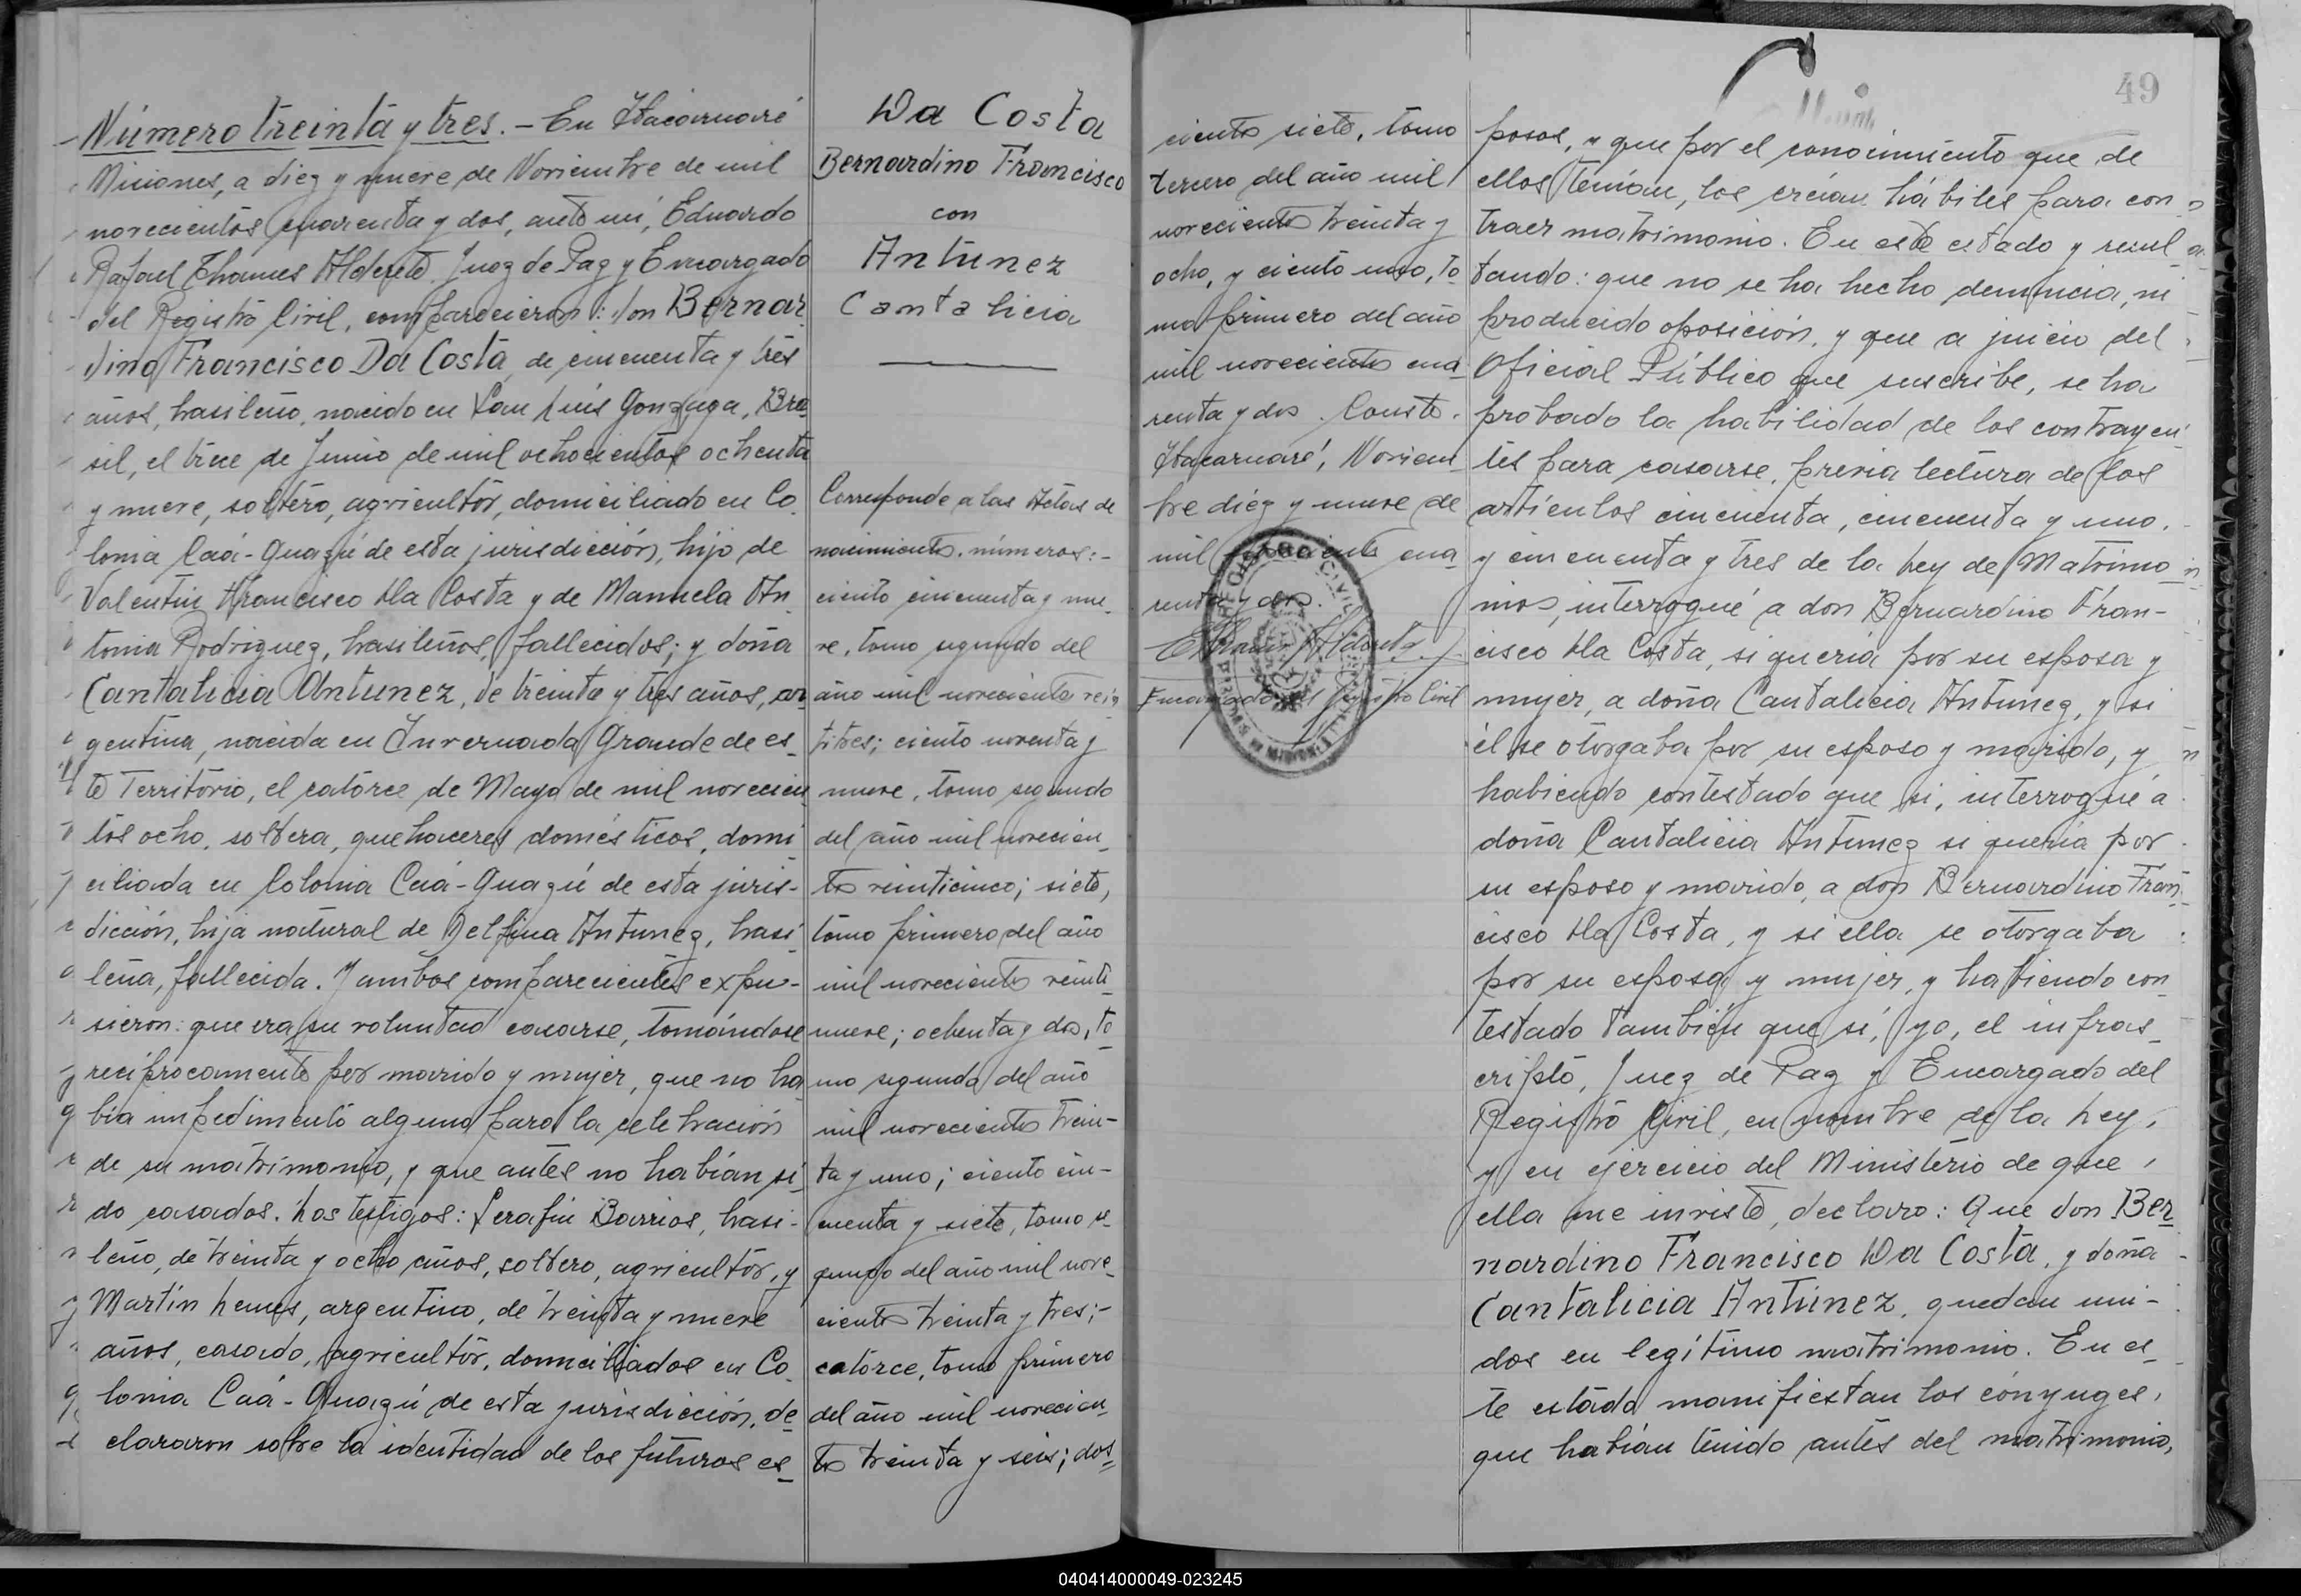 Número treinta y tres. - En Itacaruaré
Misiones, a diez y nueve de Noviembre de mil
novecientos cuarenta y dos, ante mí, Eduardo
Rafael Thames Alderete Juez de Paz y Encargado
del Registro Civil, comparecieron: don Bernar
dino Francisco Da Costa, de cincuenta y tres
años, brasileño, nacido en San Luis Gonzaga, Bra
sil, el trece de Junio de mil ochocientos ochenta
y nueve, soltero, agricultor, domiciliado en Co
lonia Caá-Guazú de esta jurisdicción, hijo de
Valentin Francisco Da Costa y de Manuela An
tonia Rodriguez, brasileños, fallecidos; y doña
Cantalicia Antunez, de treinta y tres años, ar
gentina, nacida en Invernada Grande de es
te Territorio, el catorce de Mayo de mil novecien
tos ocho, soltera, quehaceres domésticos, domi
ciliada en Colonia Caá-Guazú de esta juris-
dicción, hija natural de Delfina Antunez, brasi
leña, fallecida. Y ambos comparecientes expu-
sieron: que era su voluntad casarse, tomándose
recíprocamente por marido y mujer, que no ha
bía impedimento alguno para la celebración
de su matrimonio, y que antes no habían si
do casados. Los testigos: Serafin Barrios, brasi-
leño, de treinta y ocho años, soltero, agricultor, y
Martín Lemes, argentino, de treinta y nueve
años, casado, agricultor, domiciliados en Co
lonia Caá-Guazú de esta jurisdicción, de
clararon sobre la identidad de los futuros es
Da Costa
Bernardino Francisco
con
Antunez
Cantalicia
Corresponde a las Actas de
nacimiento, números:-
ciento cincuenta y nue
ve, tomo segundo del
año mil novecientos vein
titres; ciento noventa y
nueve, tomo segundo
del año mil novecien
tos veinticinco; siete,
tomo primero del año
mil novecientos veinti
nueve; ochenta y dos, to
mo segundo del año
mil novecientos trein-
ta y uno; ciento cin-
cuenta y siete, tomo se
gundo del año mil nove
cientos treinta y tres;-
catorce, tomo primero
del año mil novecien
tos treinta y seis; dos
cientos siete, tomo
tercero del año mil
novecientos treinta y
ocho, y ciento uno, to
mo primero del año
mil novecientos cua
renta y dos. Conste.
Itacaruaré, Noviem
bre diez y nueve de
mil novecientos cua
renta y dos.
Encargado del Registro Civil
REGISTRO CIVIL
49
posos, y que por el conocimiento que de
ellos tenían, los creían hábiles para con
traer matrimonio. En este estado y resul
tando: que no se ha hecho denuncia, ni
producido oposición, y que a juicio del
Oficial Público que suscribe, se ha
probado la habilidad de los contrayen
tes para casarse, previa lectura de los
artículos cincuenta, cincuenta y uno,
y cincuenta y tres de la Ley de Matrimo
nios, interrogué a don Bernardino Fran-
cisco Da Costa, si quería por su esposa y
mujer, a doña Cantalicia Antunez, y si
él se otorgaba por su esposo y marido, y
habiendo contestado que si, interrogué a
doña Cantalicia Antunez si quería por
su esposo y marido, a don Bernardino Fran
cisco Da Costa, y si ella se otorgaba
por su esposa y mujer, y habiendo con
testado también que sí, yo, el infras
cripto, Juez de Paz y Encargado del
Registro Civil, en nombre de la Ley,
y en ejercicio del Ministerio de que
ella me inviste, declaro: Que don Ber
nardino Francisco Da Costa, y doña
Cantalicia Antúnez, quedan uni-
dos en legítimo matrimonio. En es
te estado manifiestan los cónyuges,
que habían tenido antes del matrimonio,
040414000049-023245